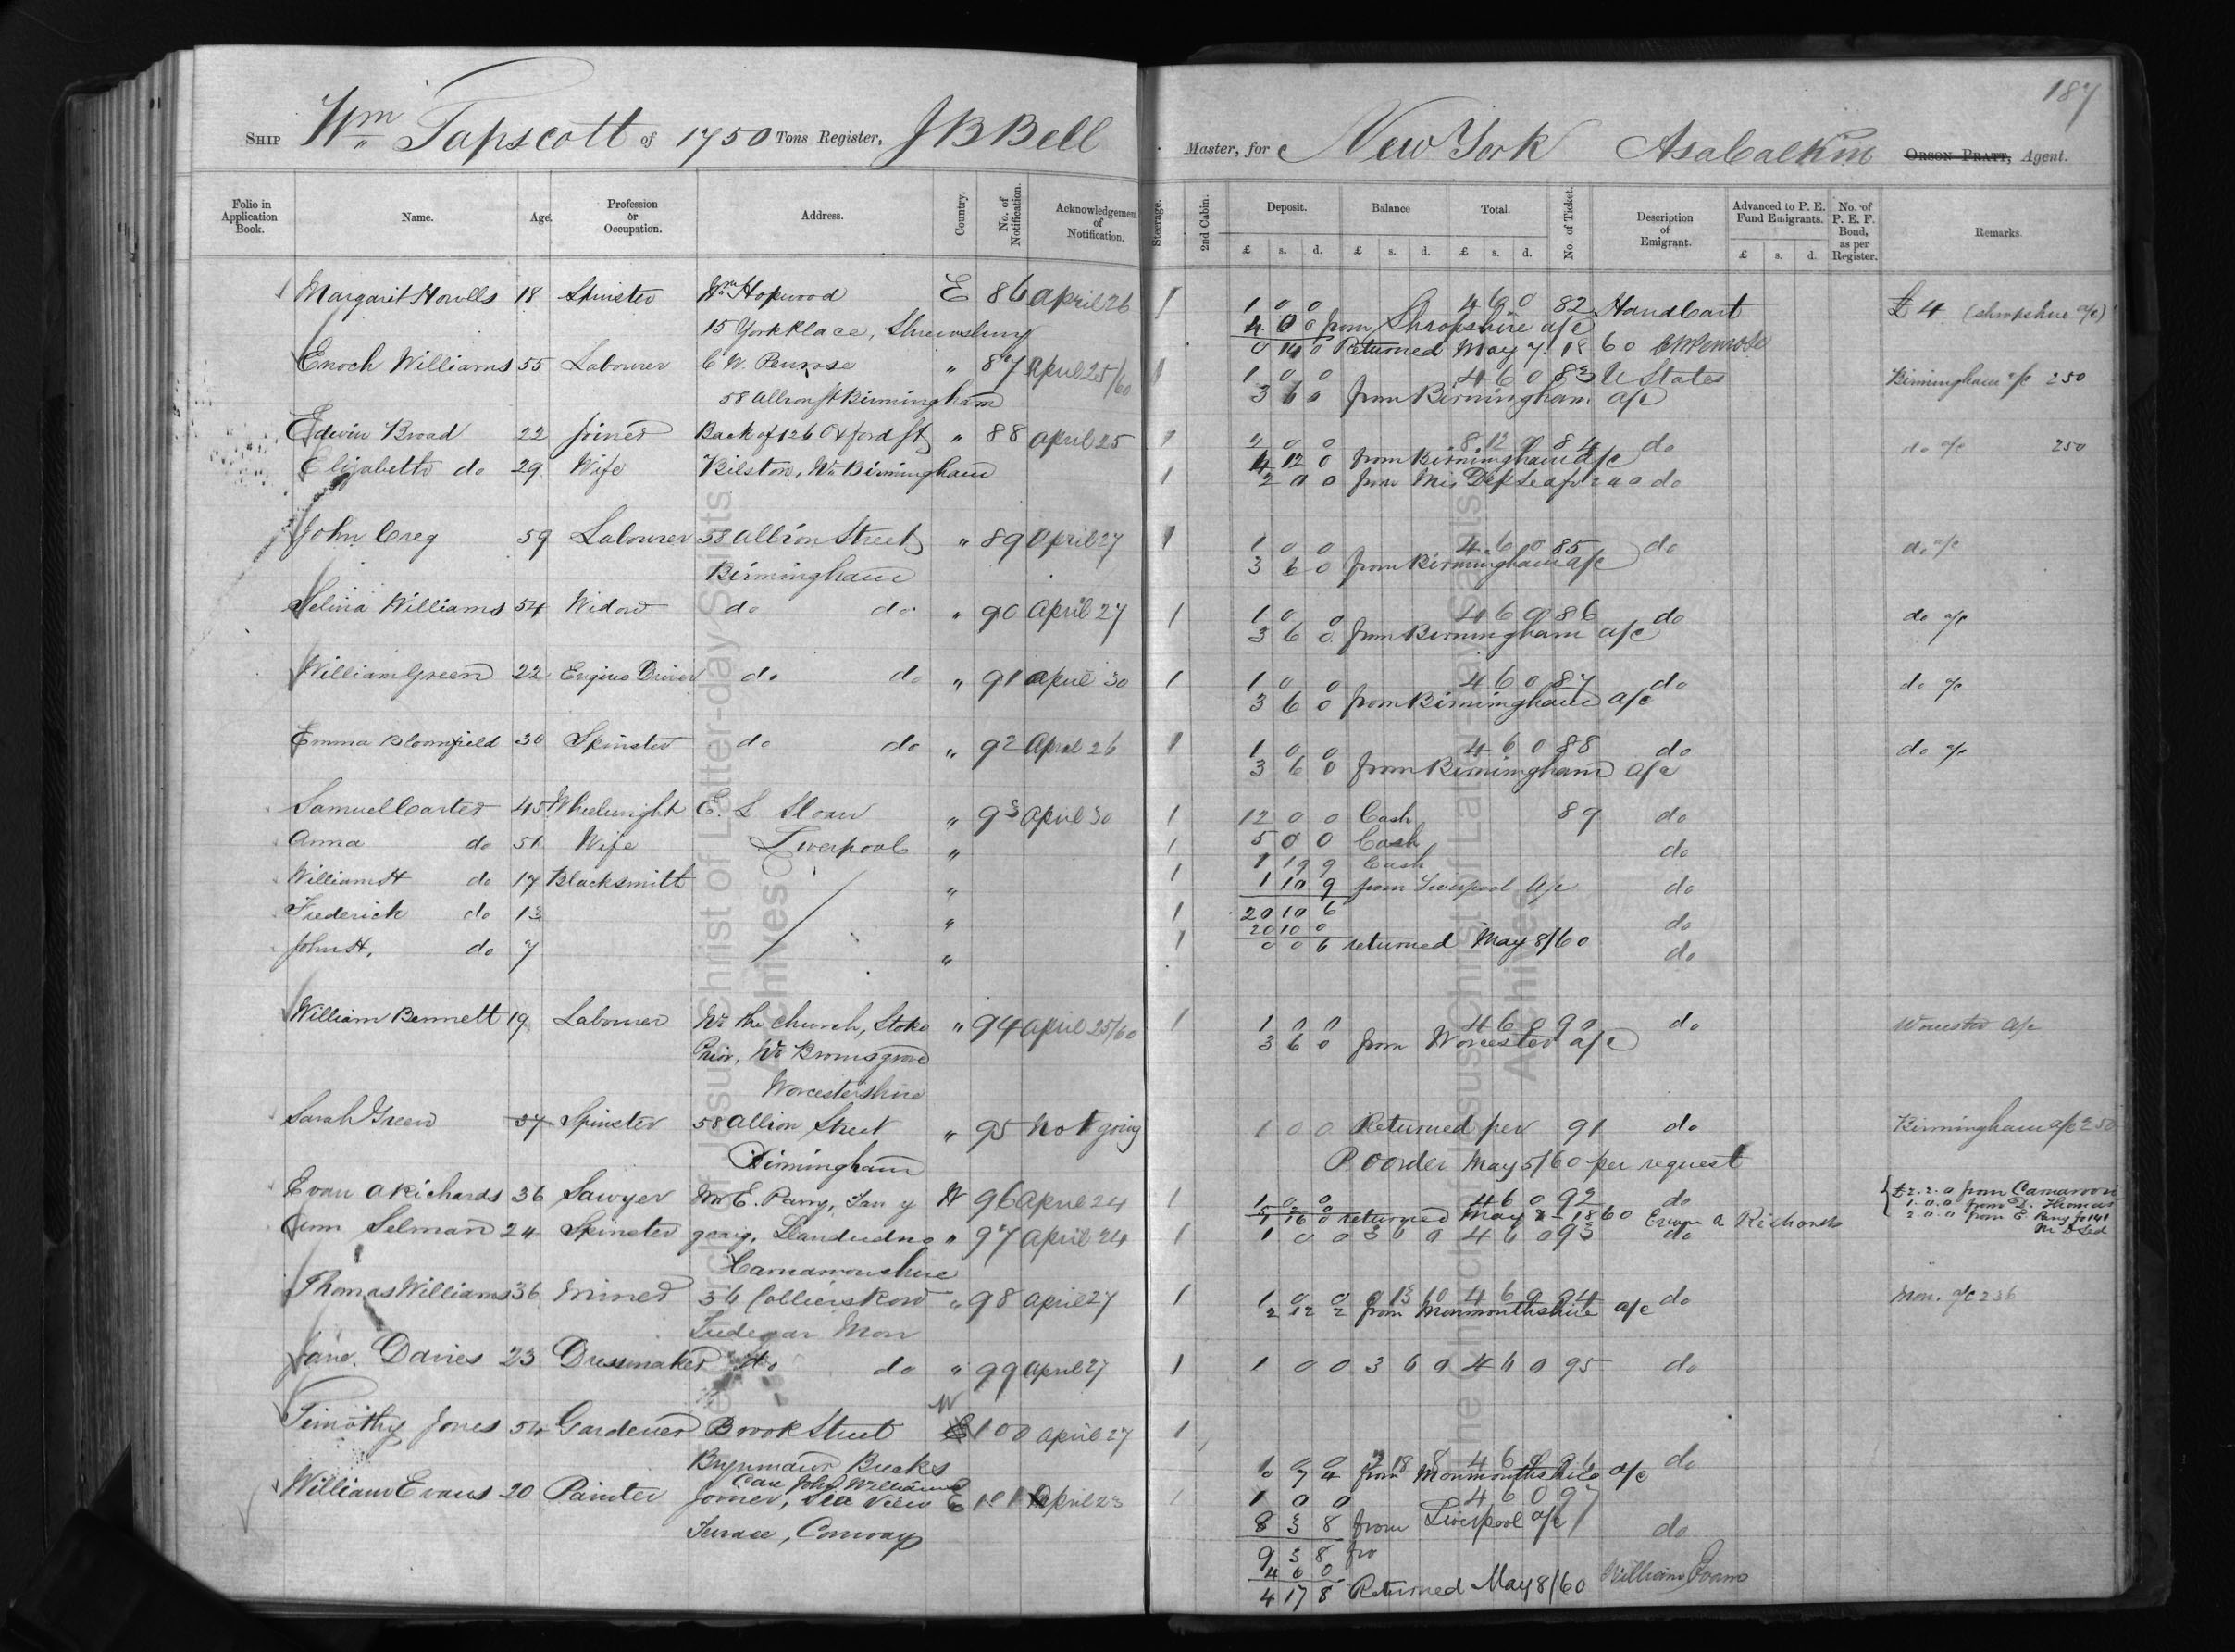 187
SHIP Wm Tapscott of 1750 Tons Register, J B Bell Master, for New York Asa Calkin ORSON PRATT, Agent.
Folio in Application Book. Name. Age. Profession or Occupation. Address. Country. No. of Notification. Acknowledgement of Notification. Steerage. 2nd Cabin. Deposit. £ s. d. Balance £ s. d. Total. £ s. d. No. of Ticket. Description of Emigrant. Advanced to P. E. Fund Emigrants. £ s. d. No. of P. E. F. Bond, as per Register. Remarks.
Margaret Howells 18 Spinster Wm Hopwood E 86 April 26 1 1 0 0 4 6 0 82 Handcart £4 (Shropshire a/c)
15 York Place, Shrewsbury 4 0 0 from Shropshire a/c
0 14 0 Returned May 7. 1860 C W Penrose
Enoch Williams 55 Labourer C W. Penrose " 87 April 25/60 1 1 0 0 4 6 0 83 U States Birmingham a/c 250
58 Allion St Birmingham 3 6 0 from Birmingham a/c
Edwin Broad 22 Joiner Back of 126 Oxford St " 88 April 25 1 2 0 0 8 12 0 84 do do a/c 250
4 12 0 from Birmingham a/c
Elizabeth do 29 Wife Bilston, Nr Birmingham 1 2 0 0 from do
John Creg 59 Labourer 58 Allion Street " 89 April 27 1 1 0 0 4 6 0 85 do do a/c
Birmingham 3 6 0 from Birmingham a/c
Selina Williams 54 Widow do do " 90 April 27 1 1 0 0 4 6 0 86 do do a/c
3 6 0 from Birmingham a/c
William Green 22 Engine Driver do do " 91 April 30 1 1 0 0 4 6 0 87 do do a/c
3 6 0 from Birmingham a/c
Emma Bloomfield 30 Spinster do do " 92 April 26 1 1 0 0 4 6 0 88 do do a/c
3 6 0 from Birmingham a/c
Samuel Carter 45 Wheelwright E. L Sloan " 93 April 30 1 12 0 0 Cash 89 do
Anna do 51 Wife Liverpool " 1 5 0 0 Cash do
1 19 9 Cash
William H do 17 Blacksmith " 1 1 10 9 from Liverpool a/c do
Frederick do 13 " 1 20 10 6 do
20 10 0
John H. do 7 " 1 0 0 6 returned May 8/60 do
William Bennett 19 Labourer Nr the church, Stoke " 94 April 25/60 1 1 0 0 4 6 0 90 do Worcester a/c
Prior, Nr Bromsgrove 3 6 0 from Worcester a/c
Worcestershire
Sarah Green 37 Spinster 58 Allion Street " 95 Not going 1 0 0 Returned per 91 do Birmingham a/c 250
Birmingham P. O order May 5/60 per request
Evan A Richards 36 Sawyer Mr E. Parry, Tan y W 96 April 24 1 1 0 0 4 6 0 92 do £2.2.0 from Carnarvon
1 16 0 returned May 1860 Evan A Richards 1.0.0 from D. Thomas
2.0.0 from E Parry fo 141
Ann Selman 24 Spinster graig, Llandudno " 97 April 24 1 1 0 0 3 6 0 4 6 0 93 do
Carnarvonshire
Thomas Williams 36 Miner 36 Colliers Row " 98 April 27 1 1 0 0 0 13 10 4 6 0 94 do Mon. a/c 236
Tredegar Mon 2 12 2 from Monmouthshire a/c
Jane Davies 23 Dressmaker do do " 99 April 27 1 1 0 0 3 6 0 4 6 0 95 do
W
Timothy Jones 54 Gardener Brook Street 100 April 27 1
Brynmawr Brecks 1 0 0 2 18 8 4 6 0 96 do
0 7 4 from Monmouthshire a/c
Care John Williams
William Evans 20 Painter Joiner, Sea View E 101 April 23 1 1 0 0 4 6 0 97
Terrace, Conway 8 3 8 from Liverpool a/c do
9 3 8
4 6 0
4 17 8 Returned May 8/60 William Evans
The Church of Jesus Christ of Latter-day Saints
Archives
The Church of Jesus Christ of Latter-day Saints
Archives